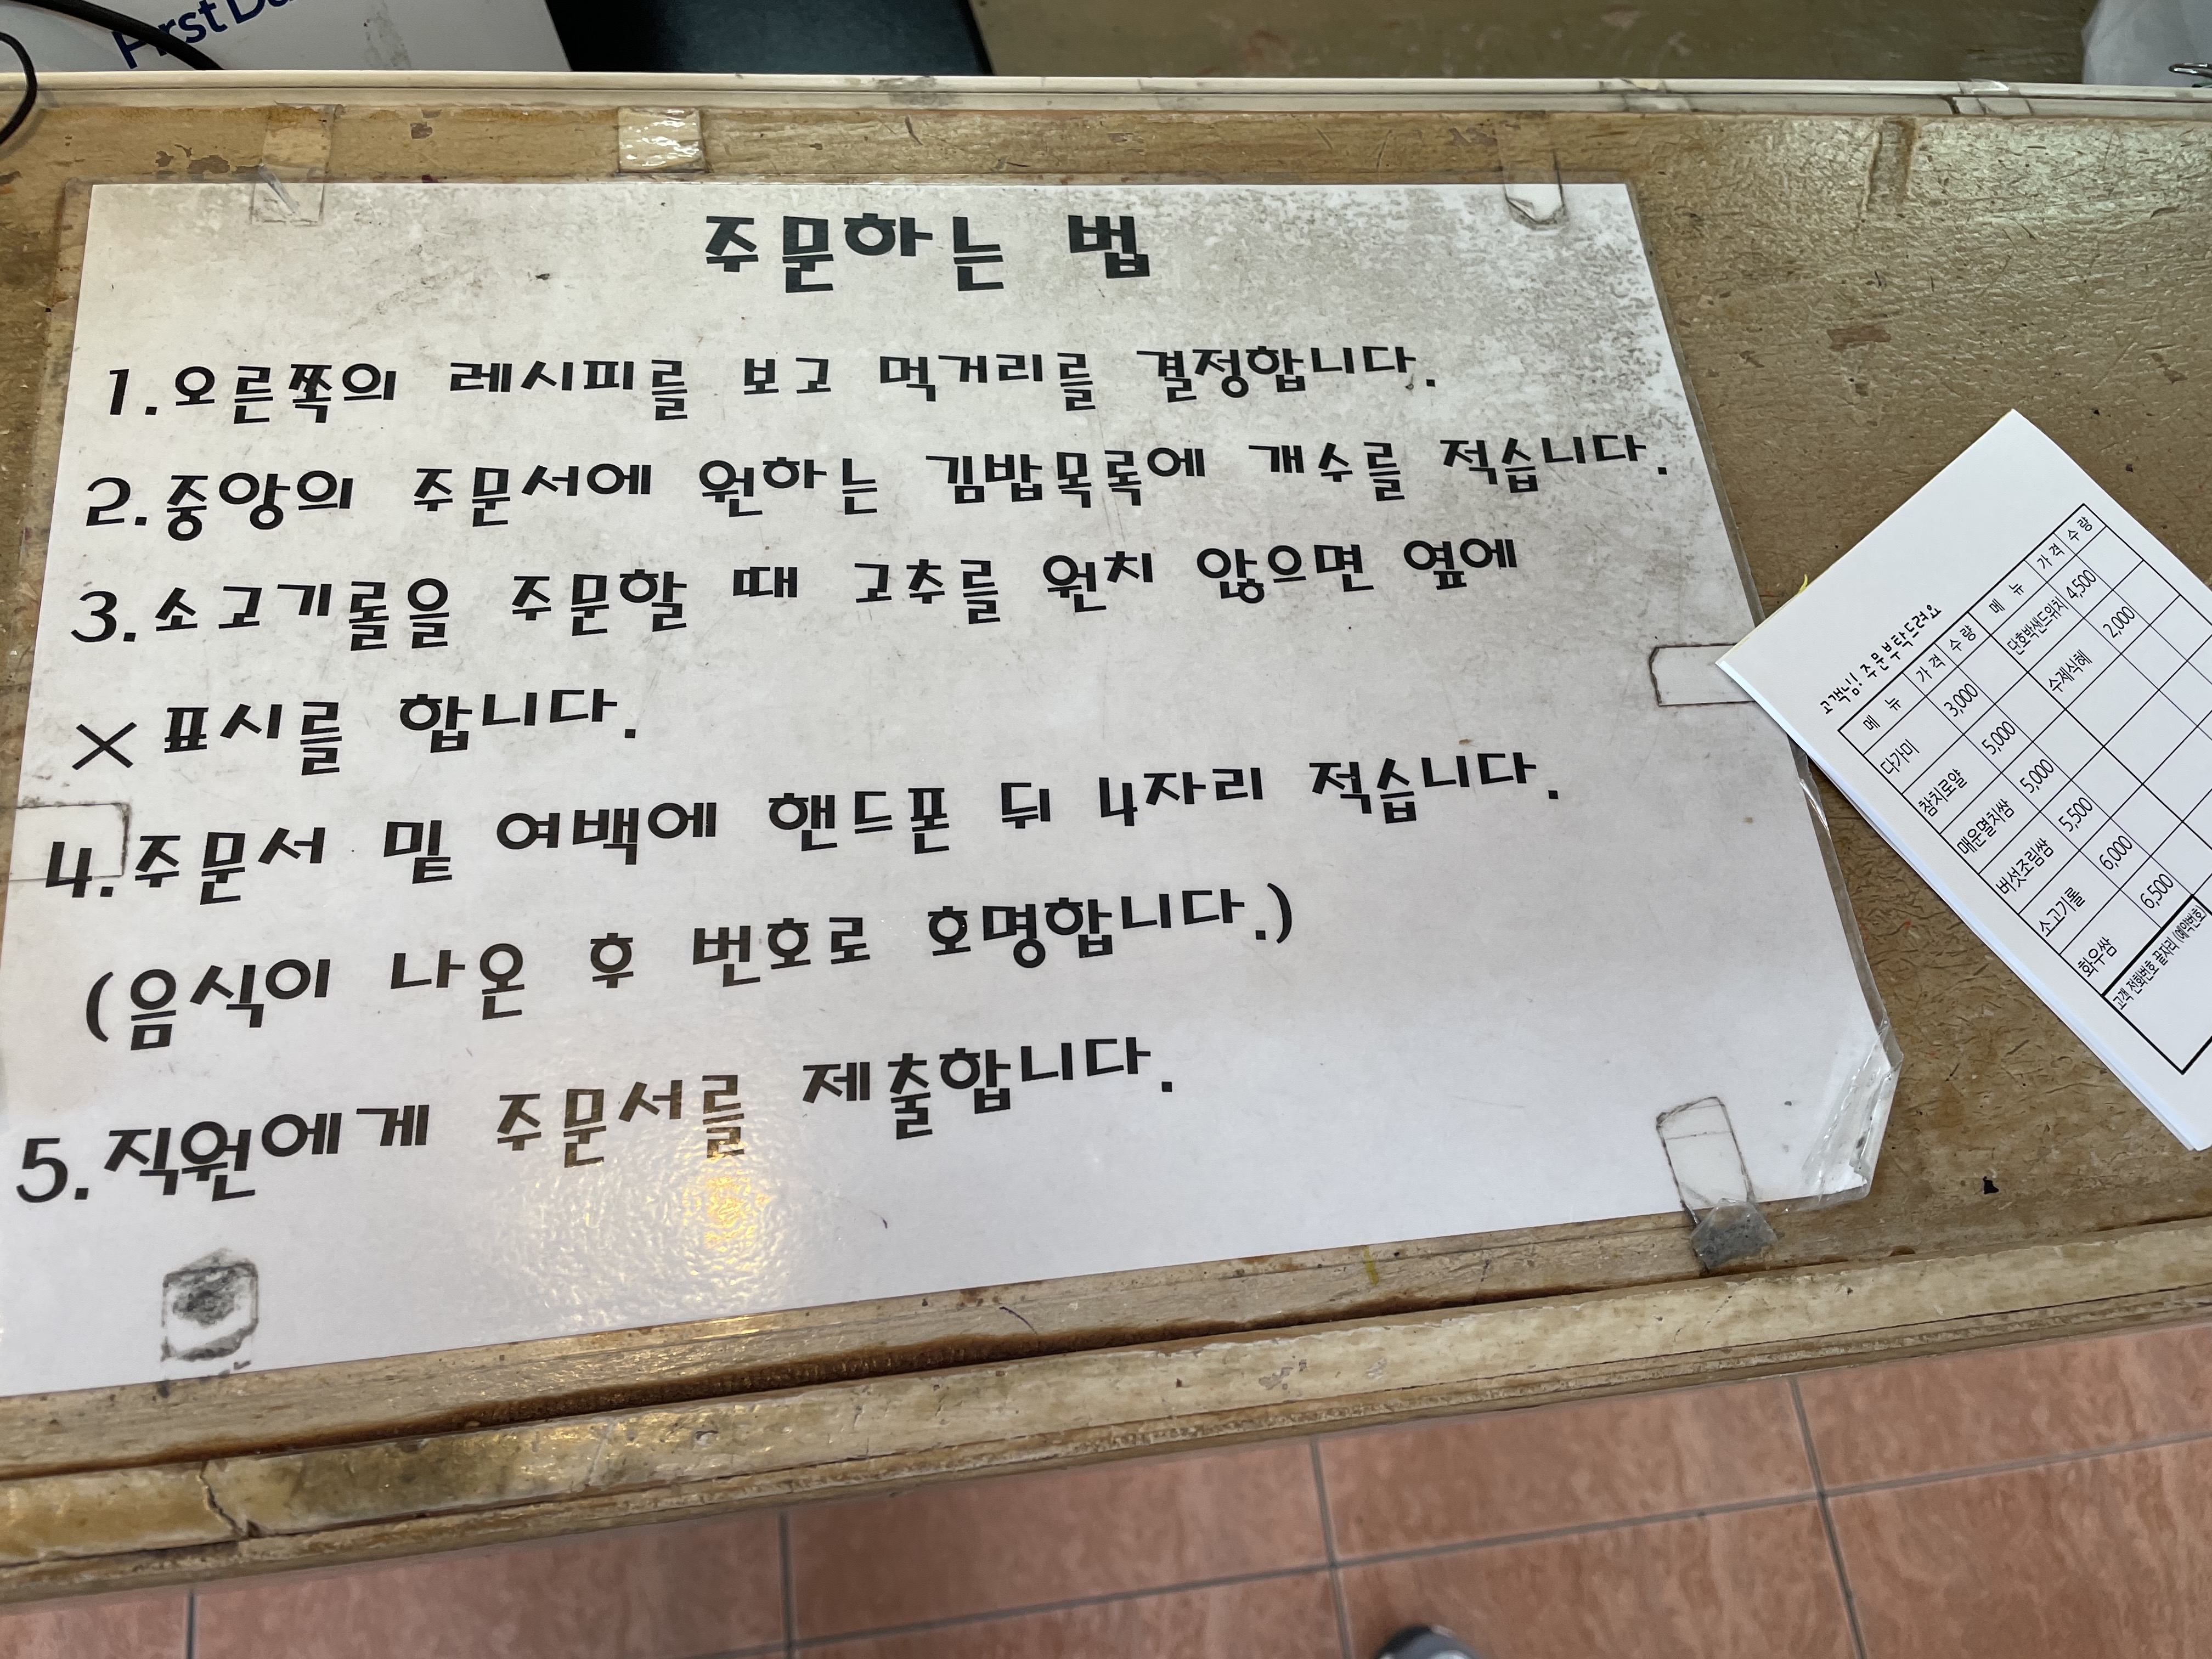 First
주문하는 법
1.오른쪽의 레시피를 보고 먹거리를 결정합니다.
2.중앙의 주문서에 원하는 김밥목록에 개수를 적습니다.
3.소고기롤을 주문할 때 고추를 원치 않으면 옆에
×표시를 합니다.
4.주문서 밑 여백에 핸드폰 뒤 4자리 적습니다.
(음식이 나온 후 번호로 호명합니다.)
5.직원에게 주문서를 제출합니다.
고객님! 주문부탁드려요
메 뉴 가 격 수 량 메 뉴 가 격 수 량
다가미 3,000 단호박샌드위치 4,500
참치로얄 5,000 수제식혜 2,000
매운멸치쌈 5,000
버섯조림쌈 5,500
소고기롤 6,000
화우쌈 6,500
고객 전화번호 끝자리 (예약번호